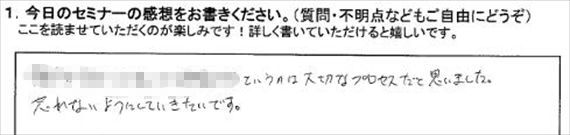 1．今日のセミナーの感想をお書きください。（質問・不明点などもご自由にどうぞ）
ここを読ませていただくのが楽しみです！詳しく書いていただけると嬉しいです。
というのは大切なプロセスだと思いました。
忘れないようにしていきたいです。